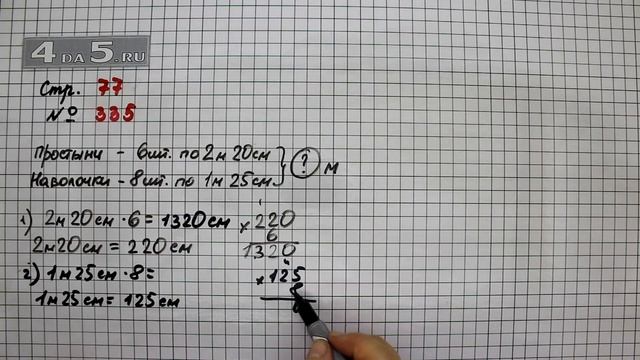 4DA5.RU
Стр. 77
№ 335
Простыни - 6 шт. по 2м 20см
Наволочки - 8 шт. по 1м 25см
? м
1) 2м 20см · 6 = 1320 см
2м 20см = 220 см
2) 1м 25см · 8 =
1м 25см = 125 см
1
× 220
6
1320
4
× 125
8
0